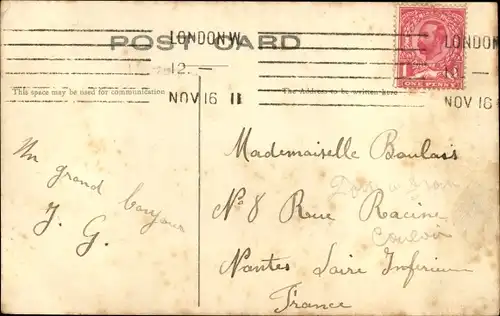 POST CARD
LONDON.W.
12. –
NOV 16 11
LONDON
NOV 16
ONE PENNY
This space may be used for communication
The Address to be written here.
Un grand bonjour
J. G.
Mademoiselle Boulais
N° 8 Rue Racine
Couloir
Nantes Loire Inférieure
France